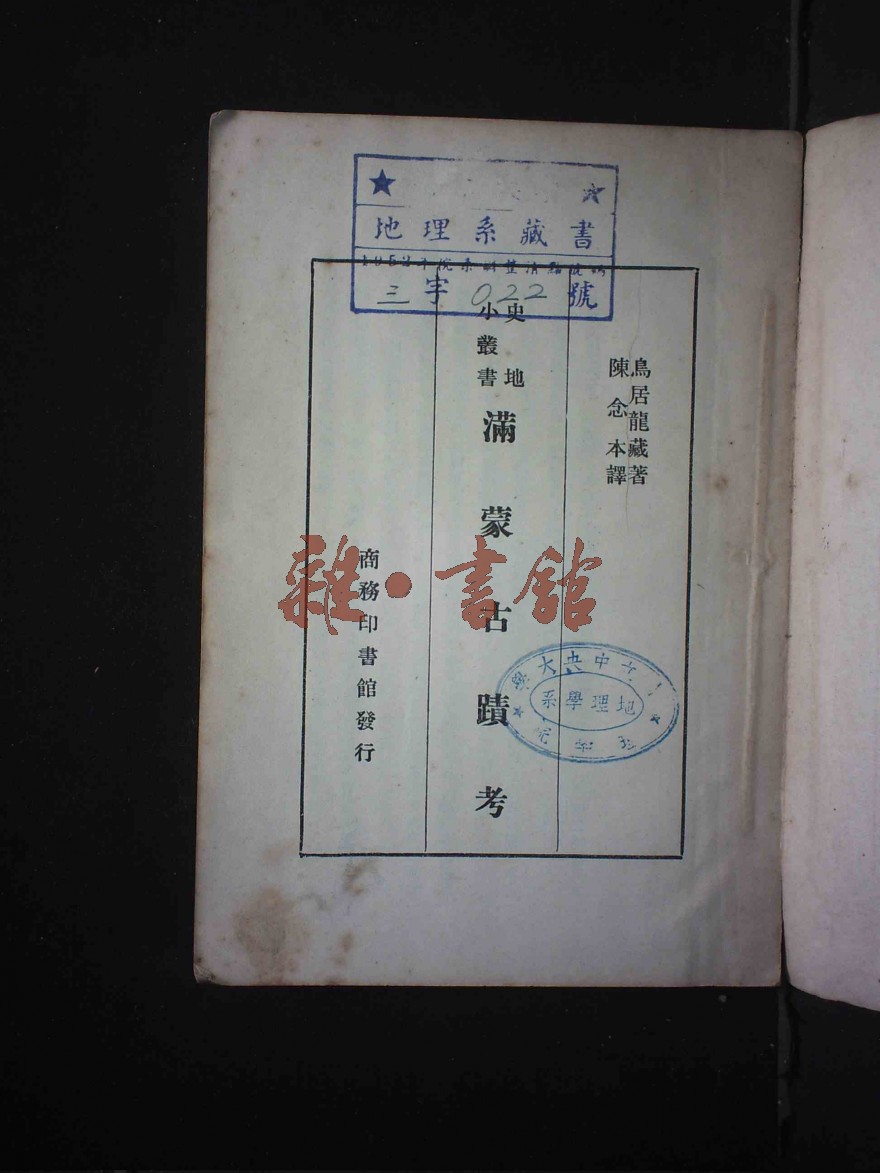 地理系藏書
三字022號
鳥居龍藏著
陳念本譯
史地
小叢書
滿蒙古蹟考
商務印書館發行
雜·書館
中央大學
地理學系